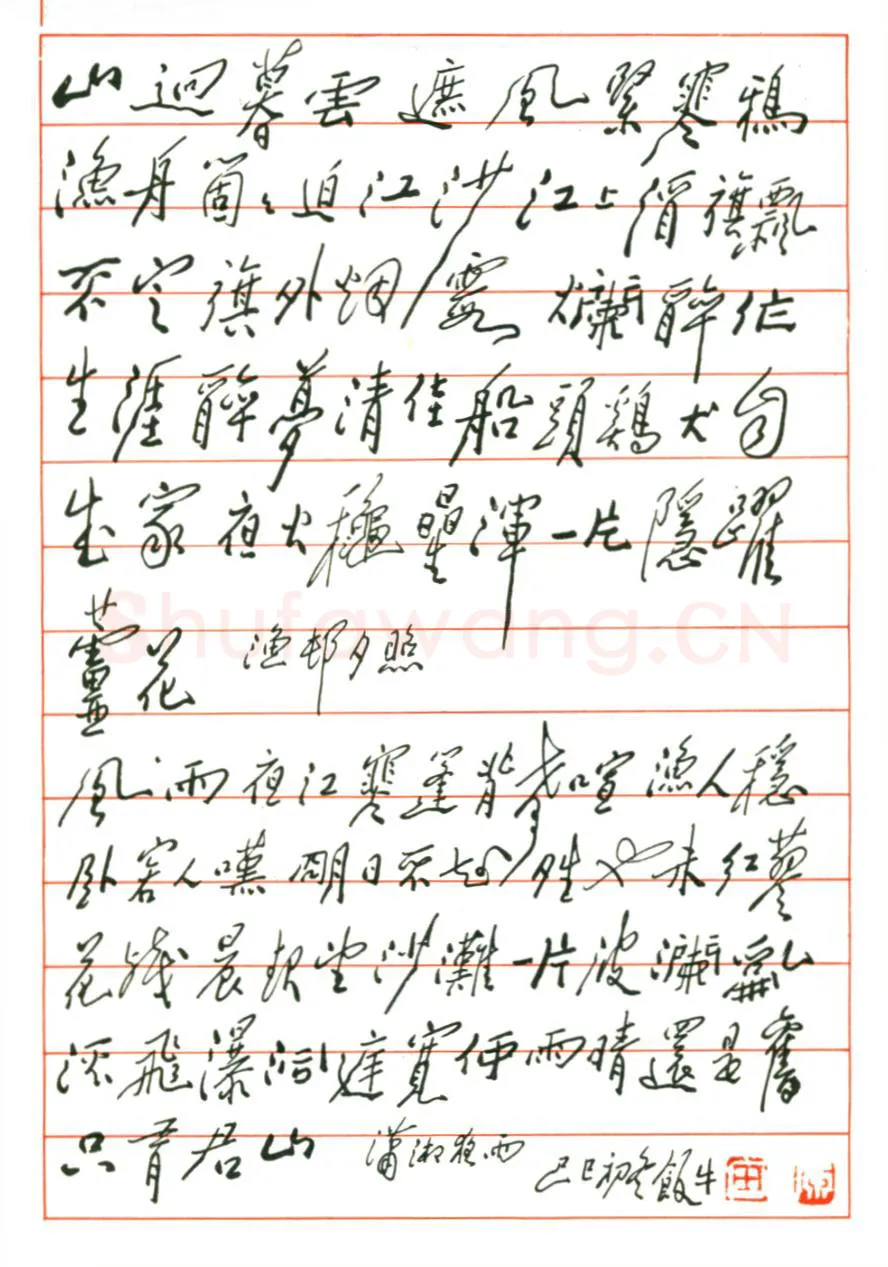 山迥暮雲遮風緊寒鴉
漁舟箇〻泊江沙江上酒旗飄
不定旗外烟霞爛醉作
生涯醉夢清佳船頭鷄犬自
成家夜火穐星渾一片隱躍
蘆花 漁邨夕照
風雨夜江寒篷背聲喧漁人穩
卧客人嘆明日不知晴也未紅蓼
花殘晨起望沙灘一片波瀾亂
流飛瀑洞庭寬雨晴還是舊
只有君山 瀟湘夜雨 己巳初冬飯牛
Shufawang.CN